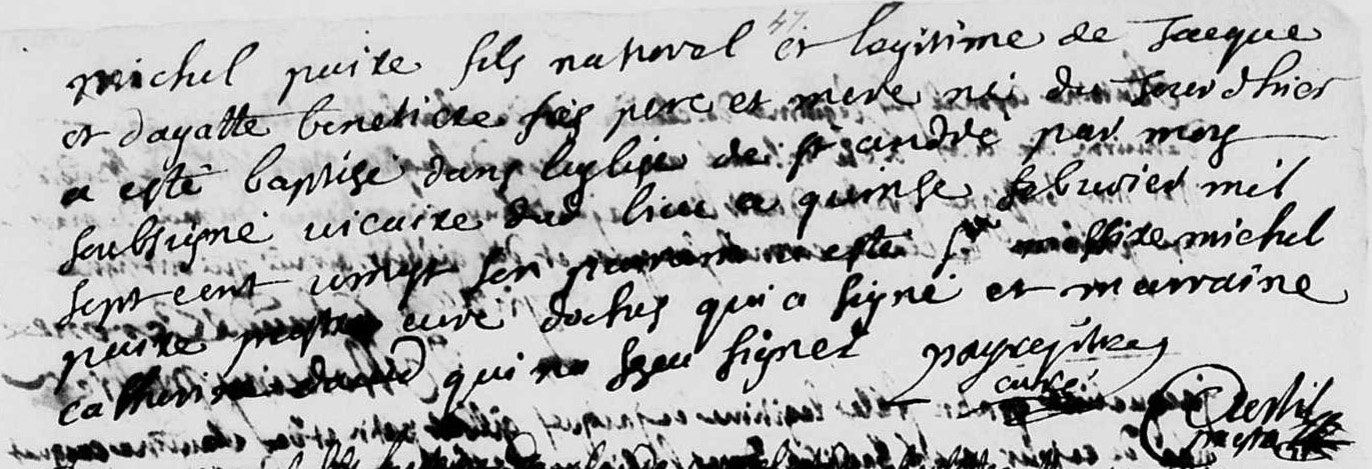 michel paire fils naturel et legitime de Jacque
et dagatte benetiere ses pere et mere né du Jour dhier
a esté baptisé dans leglise de st andré par moy
soubsigné vicaire dud lieu a quinse febvrier mil
sept cent vingt son parrain a esté sr messire michel
paire prestre curé doches qui a signé et marraine
catherine david qui na sceu signer
curé